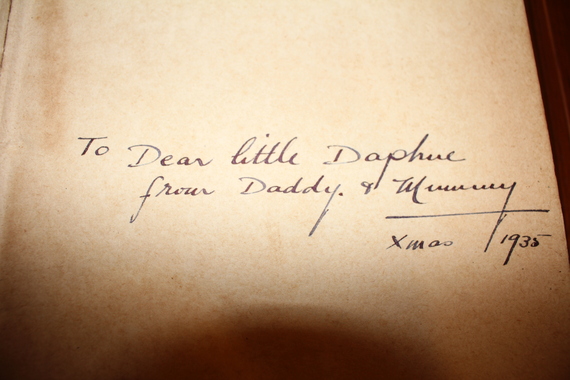 To Dear little Daphne
from Daddy. & Mummy
Xmas /1935